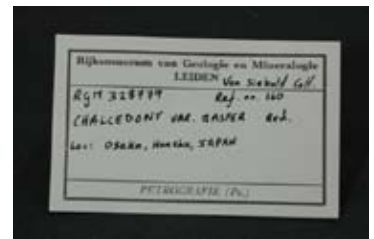 Rijksmuseum van Geologie en Mineralogie
LEIDEN Von Siebold Coll.
RgM 328779 Ref. nr. 160
CHALCEDONY VAR. JASPER Red.
Loc: Osaka, Honshu, JAPAN
PETROGRAFIE (Pg.)